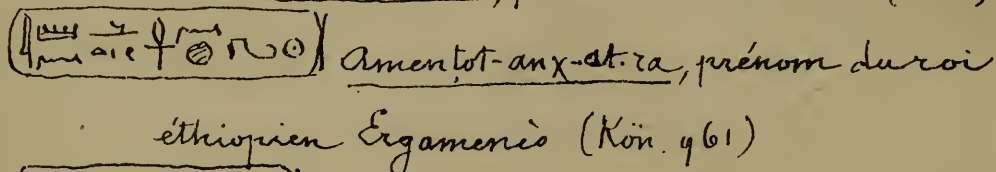 Amenṭot-anχ-at-ra, prénom du roi
éthiopien Ergamenès (Kön. 961)